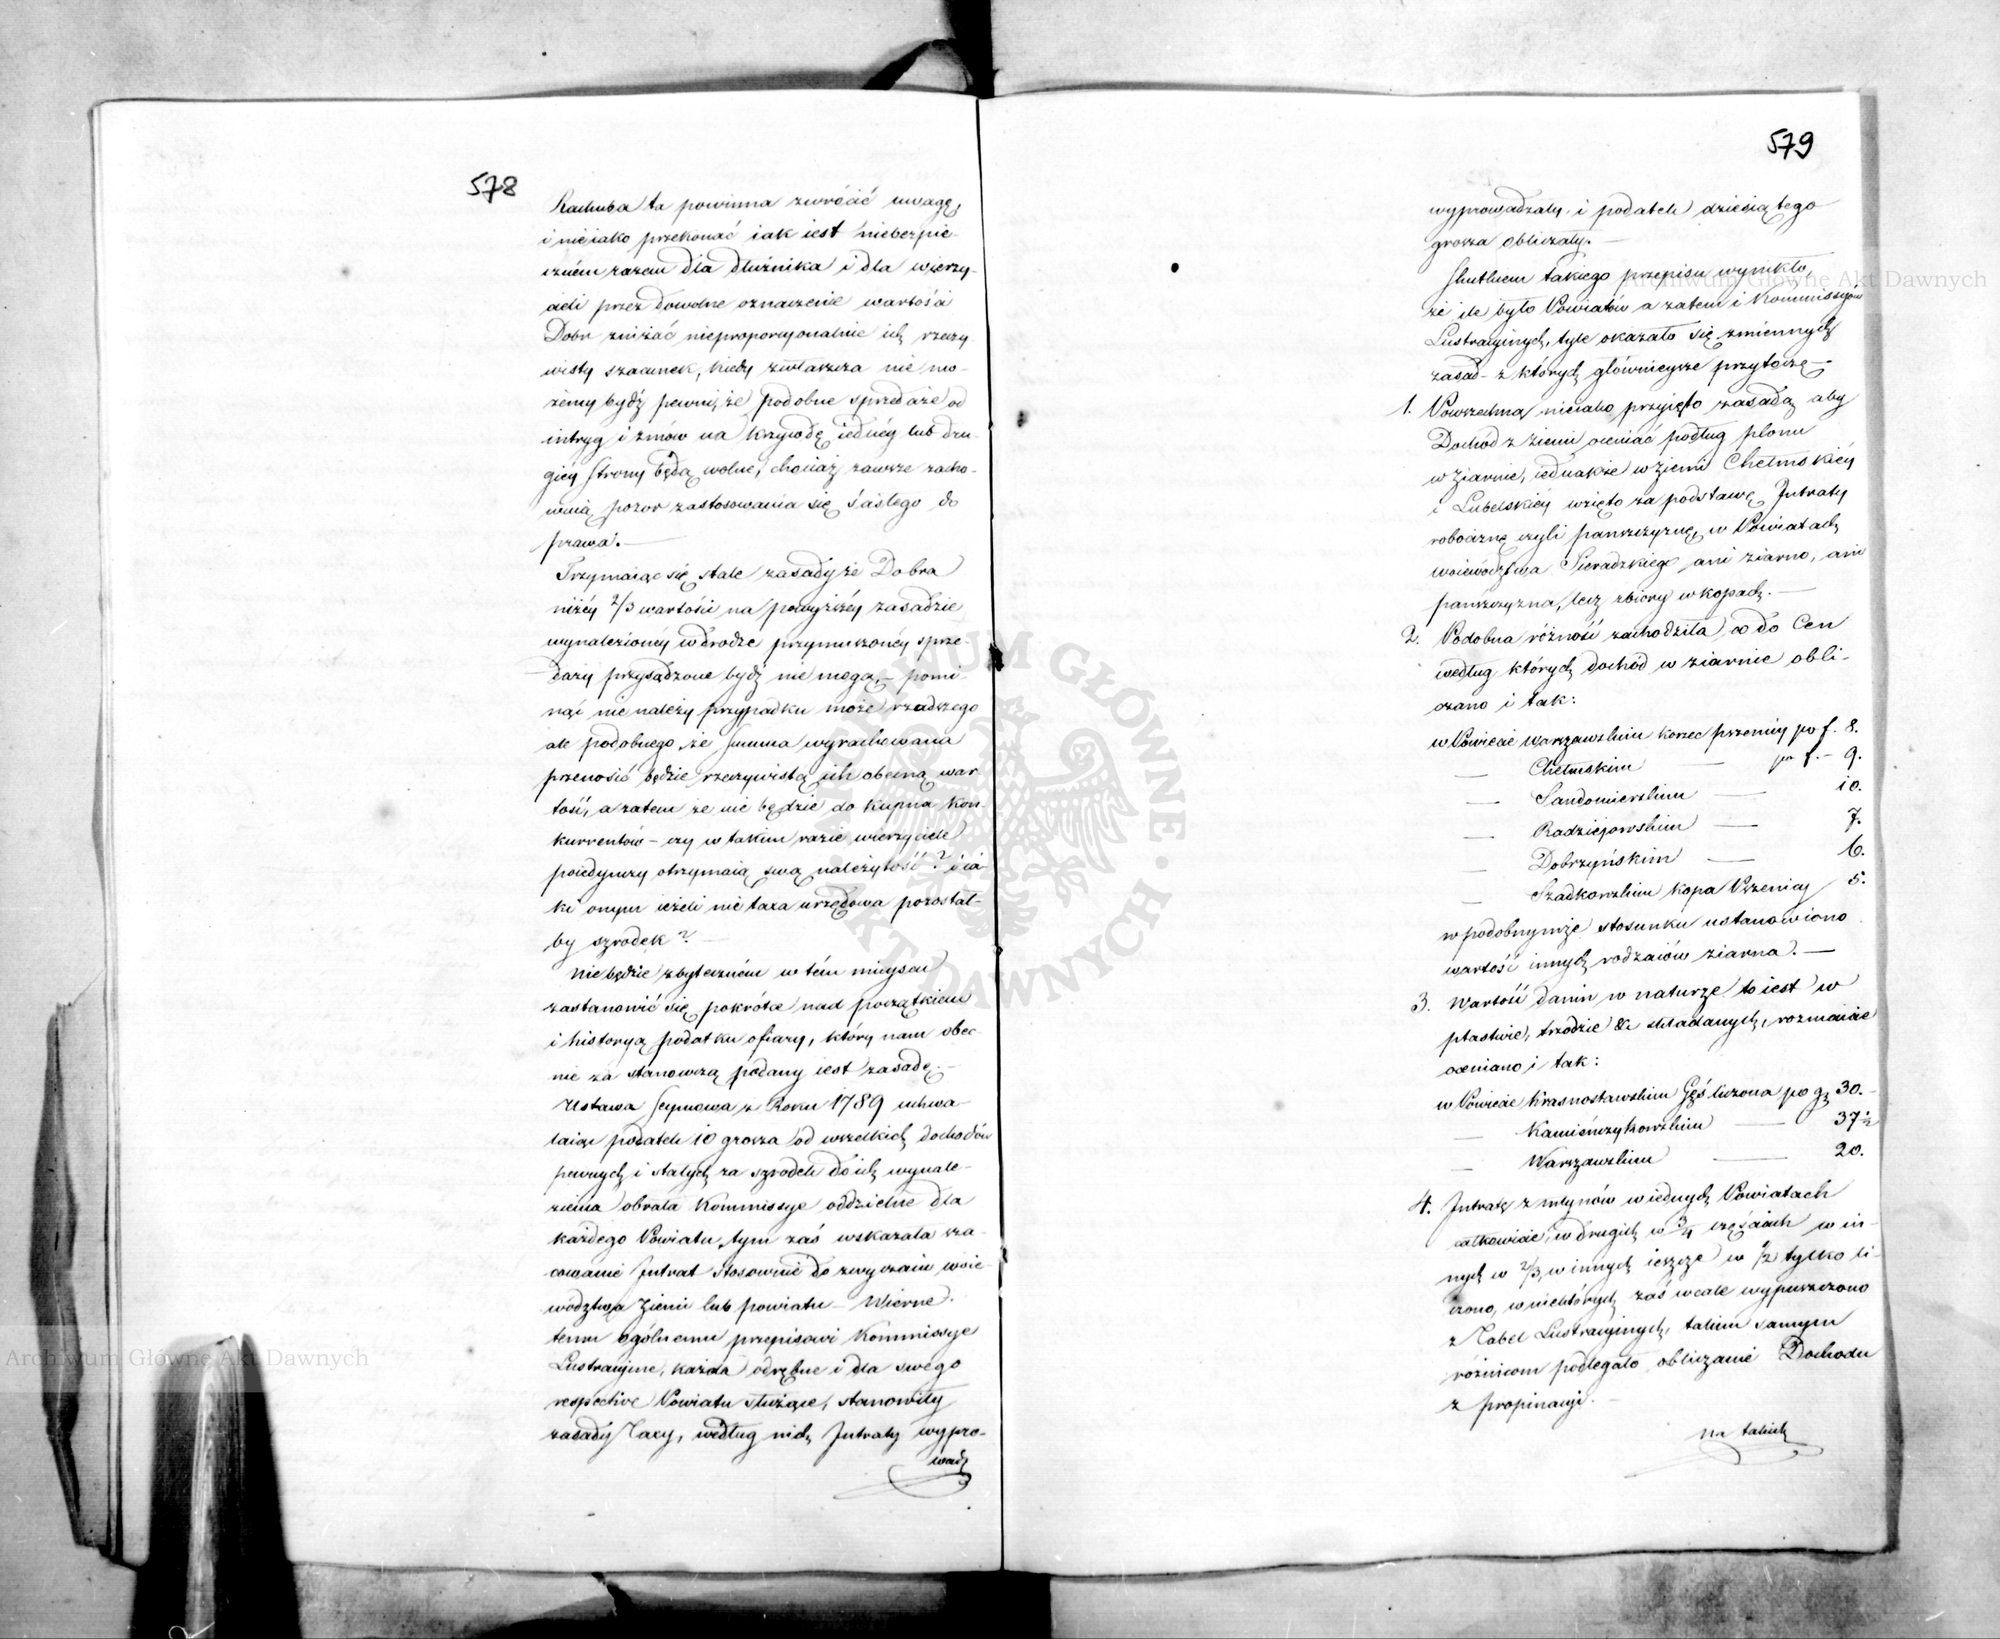 578
Rachuba ta powinna zwrócić uwagę,
i nieiako przekonać iak iest niebezpie-
czném razem dla dłużnika i dla wierzy-
cieli przez dowolne oznaczenie wartości
Dobr zniżać nieproporcyonalnie ich rzeczy
wisty szacunek, kiedy zwłaszcza nie mo-
żemy bydź pewni, że podobne sprzedaże od
intryg i zmów na krzywdę iednéy lub dru-
giéy strony będą wolne, chociaż zawsze zacho-
wuią pozor zastosowania się ściśłego do
prawa. —
Trzymaiąc się stale zasady że Dobra
niżéy 2/3 wartości na powyższéy zasadzie
wynalezionéy w drodze przymuszonéy sprze-
daży przysądzone bydź nie mogą, — pomi-
nąć nie należy przypadku może rzadszego
ale podobnego, że summa wyrachowana
przenosić będzie rzeczywistą ich obecną war-
tość, a zatem że nie będzie do kupna kon-
kurrentów — czy w takim razie wierzyciele
poiedynczy otrzymaią swą należytość? i ia-
ki onym ieżeli nie taxa urzędowa pozostał-
by szrodek? —
Nie będzie zbyteczném w tém mieyscu
zastanowić się pokrótce nad początkiem
i historyą podatku ofiary, który nam obec-
nie za stanowczą podany iest zasadę. —
Ustawa Seymowa z Roku 1789 uchwa-
laiąc podatek 10 grosza od wszelkich dochodów
pewnych i stałych za szrodek do ich wynale-
zienia obrała Kommissye oddzielne dla
każdego Powiatu, tym zaś wskazała sza-
cowanie Intrat stosownie do zwyczaiu woie-
wództwa Ziemi lub powiatu — Wierne
temu ogólnemu przepisowi Kommissye
Lustracyine, każda odrębnie i dla swego
respective Powiatu służące, stanowiły
zasady Taxy, według nich Intraty wypro-
wadz
579
wyprowadzały i podatek dziesiątego
grosza obliczały. —
Skutkiem takiego przepisu wynikło,
że ile było Powiatów a zatem i Kommissyow
Lustracyinych, tyle okazało się zmiennych
zasad — z których główniejsze przytoczę —
1. Powszechną nieiako przyięto zasadą aby
Dochód z ziemi oceniać podług plonu
w ziarnie, iednakże w ziemi Chełmskiéy
i Lubelskiey wzięto za podstawę Intraty
robociznę czyli pańszczyznę, w Powiatach
woiewództwa Sieradzkiego ani ziarno, ani
pańszczyzna, lecz zbiory w kopach. —
2. Podobna różność zachodziła co do Cen
według których dochód w ziarnie obli-
czano i tak:
w Powiecie Warszawskim korzec pszenicy po f. 8.
— Chełmskim — po f. — 9.
— Sandomierskim — 10.
— Radziejowskim — 7.
— Dobrzyńskim — 6.
— Szadkowskim kopa Pszenicy 5.
w podobnymże stosunku ustanowiono
wartość innych rodzaiów ziarna. —
3. Wartość danin w naturze to iest w
ptastwie, trzodzie &c składanych, rozmaicie
oceniano i tak:
w Powiecie Krasnostawskim Gęś liczona po gr 30. —
— Kamieńczykowskim — 37 1/2
— Warszawskim — 20.
4. Intratę z młynów w iednych Powiatach
całkowicie, w drugich w 3/4 częściach w in-
nych w 2/3, w innych ieszcze w 1/2 tylko li-
czono, w niektórych zaś wcale wypuszczono
z Tabel Lustracyinych, takim samym
różnicom podlegało obliczanie Dochodu
z propinacyi. —
na takich
Archiwum Główne Akt Dawnych
Archiwum Główne Akt Dawnych
ARCHIWUM GŁÓWNE · AKT DAWNYCH ·